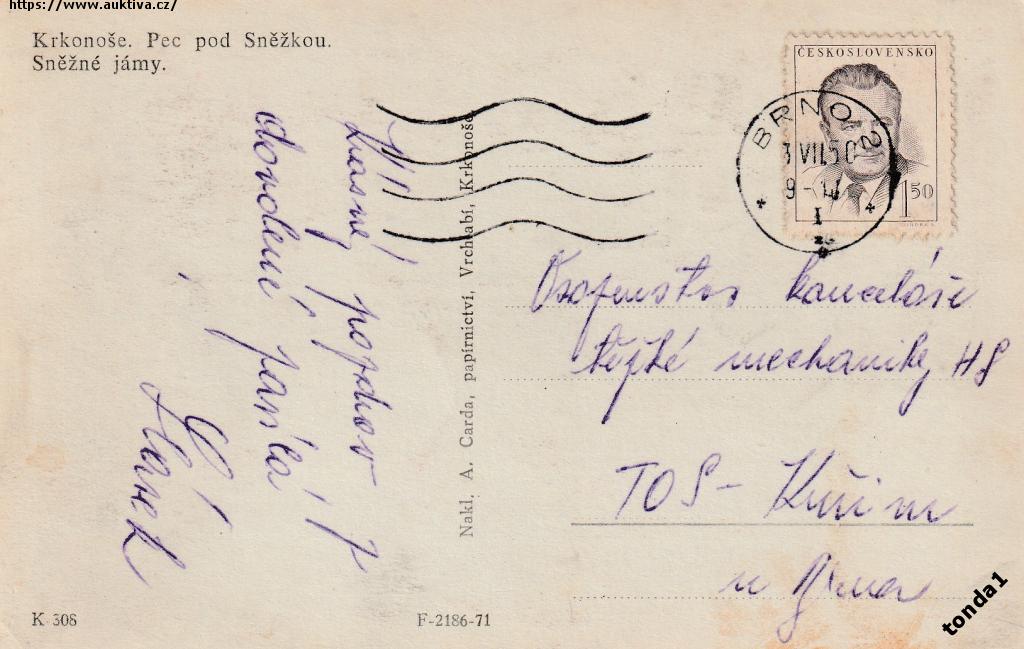 https://www.auktiva.cz/
Krkonoše. Pec pod Sněžkou.
Sněžné jámy.
ČESKOSLOVENSKO
150
BRNO 2
3 VII 50
9-
I
krásný pozdrav z
dovolené
Nakl. A. Carda, papírnictví, Vrchlabí, Krkonoše.
Osazenstvo kanceláře
těžké mechaniky
TOS - Kuřim
u Brna
K 308
F-2186-71
tonda1